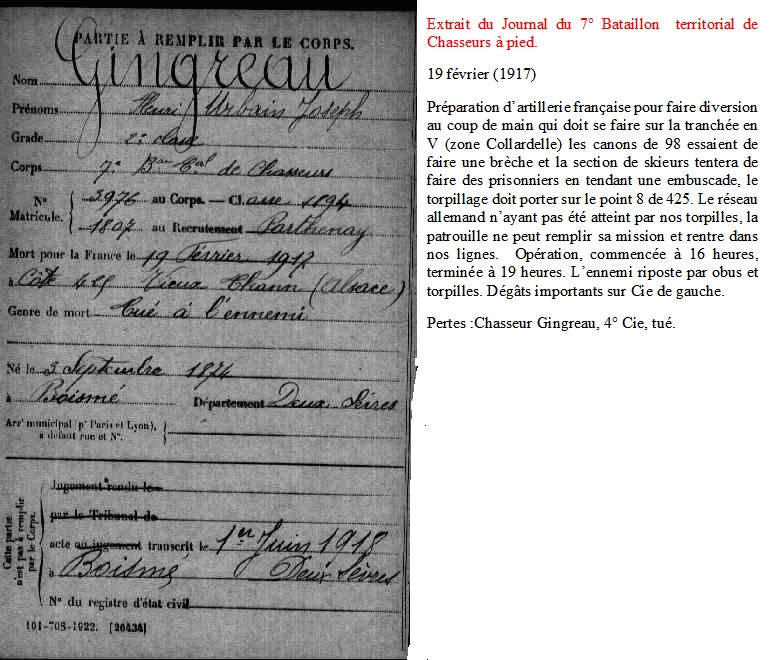 PARTIE À REMPLIR PAR LE CORPS.
Nom Gingreau
Prénoms Henri Urbain Joseph
Grade 2e classe
Corps 7e Bon Cal de Chasseurs
N° Matricule. { 3976 au Corps. — Classe 1894
1807 au Recrutement Parthenay
Mort pour la France le 19 Février 1917
à Côte 425 Vieux Thann (Alsace)
Genre de mort Tué à l'ennemi
Né le 3 Septembre 1874
à Boismé Département Deux Sèvres
Arrt municipal (pr Paris et Lyon),
à défaut rue et N°.
Cette partie n'est pas à remplir par le Corps.
Jugement rendu le
par le Tribunal de
acte ou jugement transcrit le 1er Juin 1918
à Boismé Deux Sèvres
N° du registre d'état civil
101-708-1922. [26434]
Extrait du Journal du 7° Bataillon territorial de
Chasseurs à pied.
19 février (1917)
Préparation d'artillerie française pour faire diversion
au coup de main qui doit se faire sur la tranchée en
V (zone Collardelle) les canons de 98 essaient de
faire une brèche et la section de skieurs tentera de
faire des prisonniers en tendant une embuscade, le
torpillage doit porter sur le point 8 de 425. Le réseau
allemand n'ayant pas été atteint par nos torpilles, la
patrouille ne peut remplir sa mission et rentre dans
nos lignes. Opération, commencée à 16 heures,
terminée à 19 heures. L'ennemi riposte par obus et
torpilles. Dégâts importants sur Cie de gauche.
Pertes :Chasseur Gingreau, 4° Cie, tué.